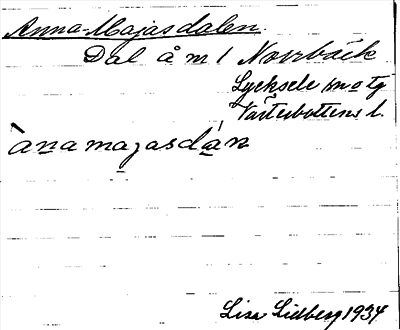 Anna-Majasdalen.
Dal å m 1 Norrbäck
Lycksele sn o tg
Västerbottens l.
ànamajasdán
Lisa Lidberg 1934